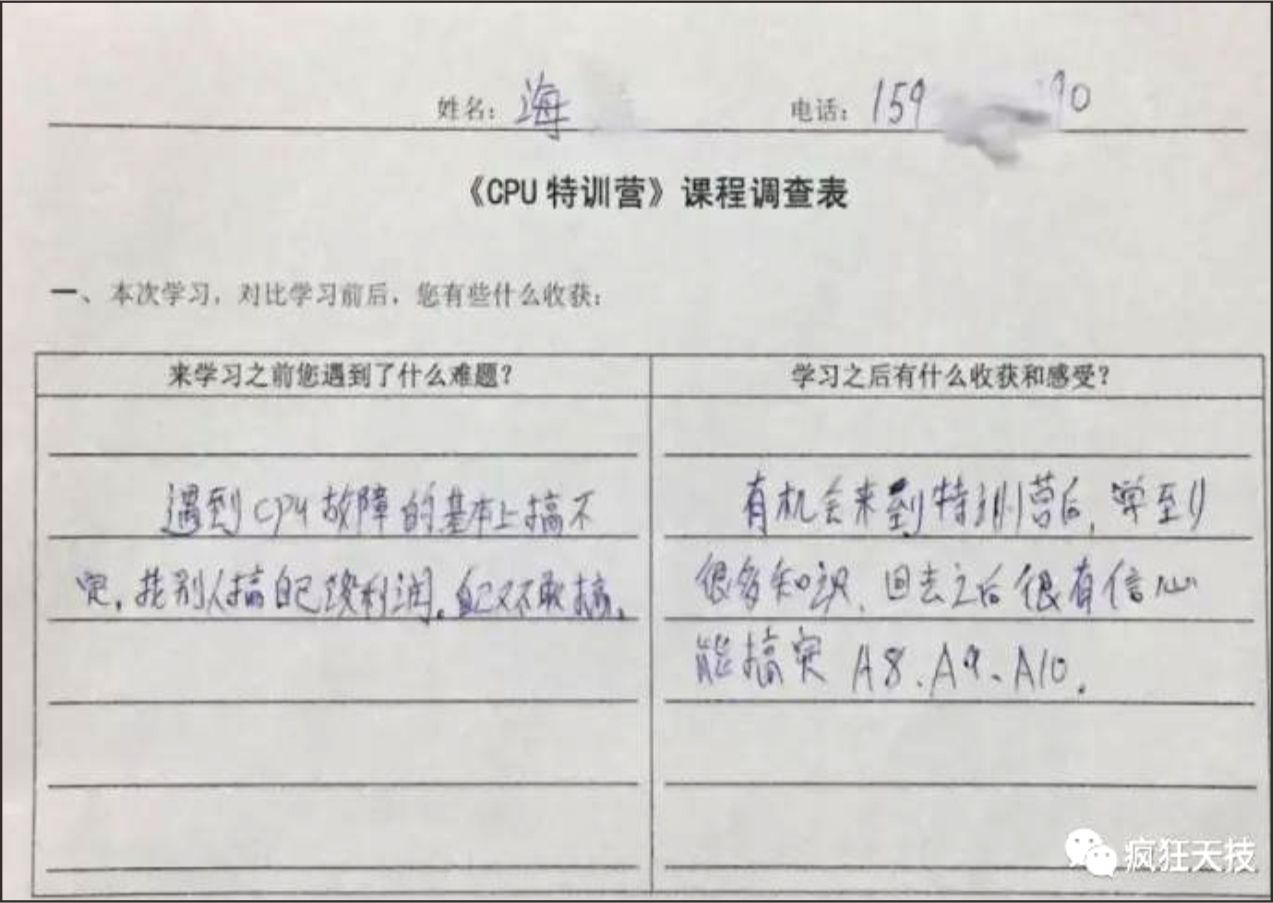 姓名：海 电话：159 90
《CPU特训营》课程调查表
一、本次学习，对比学习前后，您有些什么收获：
来学习之前您遇到了什么难题？
遇到CPU故障的基本上搞不
定，找别人搞自己没利润。自己又不敢搞。
学习之后有什么收获和感受？
有机会来到特训营后，学到
很多知识，回去之后很有信心
能搞定A8、A9、A10。
疯狂天技